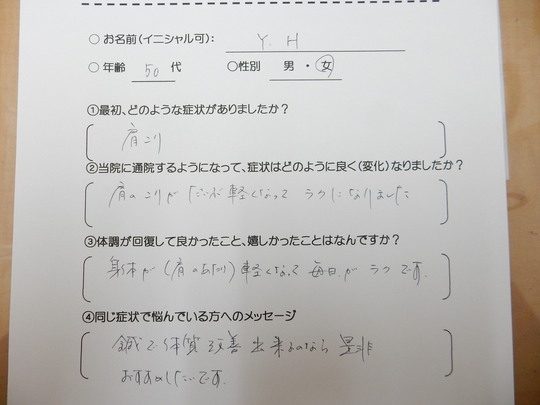 ○ お名前(イニシャル可)： Y. H
○ 年齢 50 代 ○性別 男 ・ 女
①最初、どのような症状がありましたか？
肩こり
②当院に通院するようになって、症状はどのように良く(変化)なりましたか？
肩のこりがだいぶ軽くなってラクになりました
③体調が回復して良かったこと、嬉しかったことはなんですか？
身体が(肩のあたり)軽くなって毎日がラクです.
④同じ症状で悩んでいる方へのメッセージ
鍼で体質改善出来るのなら是非
おすすめしたいです.